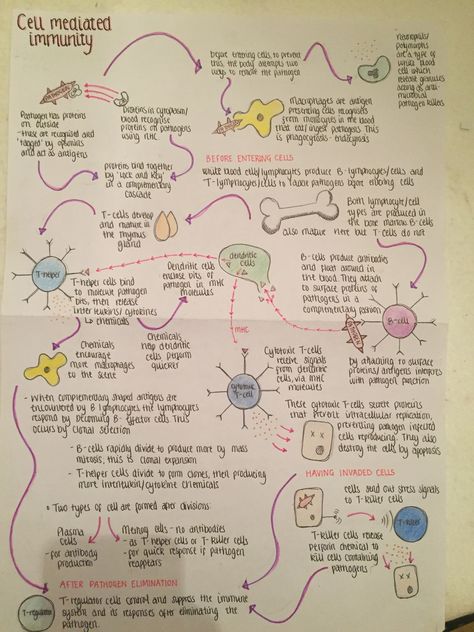 Cell mediated
immunity
PATHOGEN
Pathogen has proteins
on outside
- these are recognised and
'tagged' by opsonins
and act as antigens
proteins in cytoplasm/
blood recognise
proteins on pathogens
using MHC.
proteins bind together
by 'lock and key'
in a complementary
cascade
before entering cells, to prevent
this, the body attempts two
ways to remove the pathogen
Neutrophils/
polymorphs
are a type of
white blood
cell which
release granules
acting as anti-
microbial
pathogen killers
Macrophages are antigen
presenting cells recognises
from monocytes in the blood
that eat/ingest pathogens. This
is phagocytosis - endocytosis
BEFORE ENTERING CELLS
white blood cells/lymphocytes produce B-lymphocytes/cells and
T-lymphocytes/cells to remove pathogens before entering cells
T-cells develop
and mature in
the thymus
gland
Both lymphocyte/cell
types are produced in
the bone marrow. B-cells
also mature here but T-cells do not
T-helper
T-helper cells bind
to molecule pathogen
bits, then release
interleukins/cytokines
↳ chemicals
Dendritic cells
enclose bits of
pathogen in MHC
molecules
dendritic
cells
B-cells produce antibodies
and float around in
the blood. They attach
to surface proteins of
pathogens in a
complementary pattern
B-cell
PATHOGEN
by attaching to surface
proteins/antigens interferes
with pathogen function
Chemicals
encourage
more macrophages
to the scene
Chemicals
help dendritic
cells perform
quicker
MHC
Cytotoxic T-cells
receive signals
from dendritic
cells, via MHC
molecules
cytotoxic
T-cell
- When complementary shaped antigens are
encountered by B lymphocytes the lymphocytes
respond by becoming B-effector cells. This
occurs by clonal selection
These cytotoxic T-cells secrete proteins
that prevent intracellular replication,
preventing pathogen infected
cells reproducing. They also
destroy the cells by apoptosis
- B-cells rapidly divide to produce more by mass
mitosis, this is clonal expansion
- T-helper cells divide to form clones, then producing
more interleukin/cytokine chemicals
HAVING INVADED CELLS
• Two types of cell are formed after divisions:
cells send out stress signals
to T-killer cells
T-killer
Plasma
cells
- for antibody
production
Memory cells - no antibodies
- as T-helper cells or T-killer cells
- for quick response if pathogen
reappears
T-killer cells release
perforin chemical to
kill cells containing
pathogens
AFTER PATHOGEN ELIMINATION
T-regulator
T-regulator cells control and suppress the immune
system and its responses after eliminating the
pathogen.